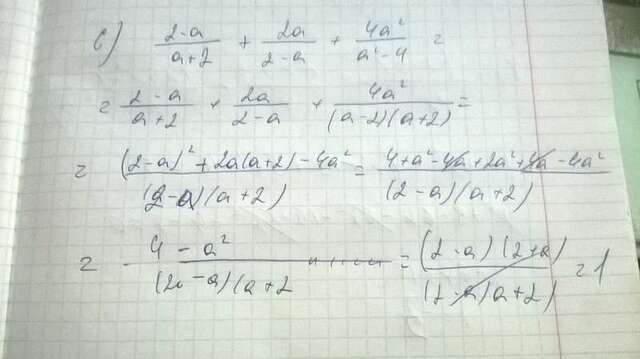 c) (2-a)/(a+2) + 2a/(2-a) + 4a²/(a²-4) =
= (2-a)/(a+2) + 2a/(2-a) + 4a²/((a-2)(a+2)) =
= ((2-a)²+2a(a+2)-4a²)/((2-a)(a+2)) = (4+a²-4a+2a²+4a-4a²)/((2-a)(a+2))
= (4-a²)/((2-a)(a+2) = ((2-a)(2+a))/((2-a)(a+2)) = 1